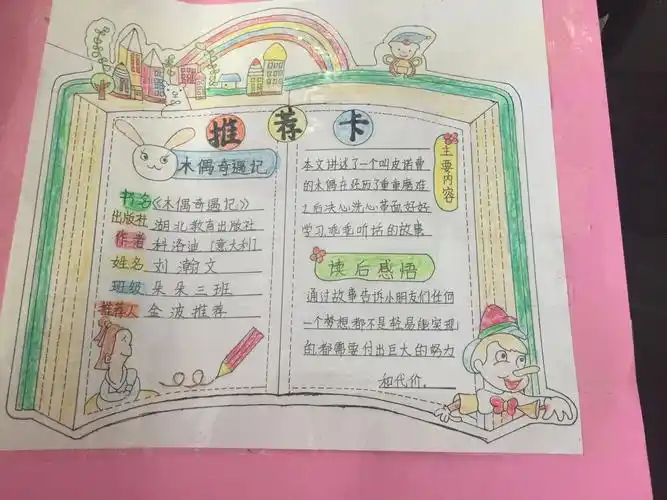 推荐卡
木偶奇遇记
书名《木偶奇遇记》
出版社 湖北教育出版社
作者 科洛迪[意大利]
姓名 刘瀚文
班级 朵朵三班
推荐人 金波推荐
主要内容
本文讲述了一个叫皮诺曹
的木偶在经历了重重磨难
之后决心洗心革面好好
学习乖乖听话的故事
读后感悟
通过故事告诉小朋友们任何
一个梦想都不是轻易能实现
的都需要付出巨大的努力
和代价。